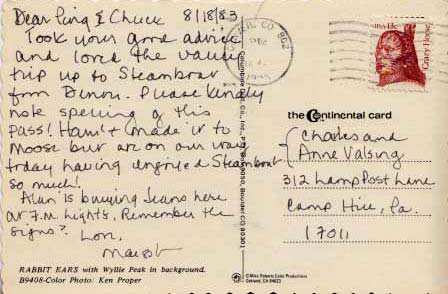 Dear Ping & Chuck 8/18/83
Took your good advice
and loved the valley
trip up to Steamboat
from Denver. Please kindly
note spelling of this
Pass! Haven't made it to
Moose but are on our way
today having enjoyed Steamboat
so much!
Alan is buying Jeans here
at F.M. Lights. Remember the
signs?
Love,
RABBIT EARS with Wyllie Peak in background.
B9408-Color Photo: Ken Proper
the Continental card
Charles and
Anne Valsing
312 Lamp Post Lane
Camp Hill, Pa.
17011
USA 13c
Crazy Horse
© Mike Roberts Color Productions
Oakland, CA 94623